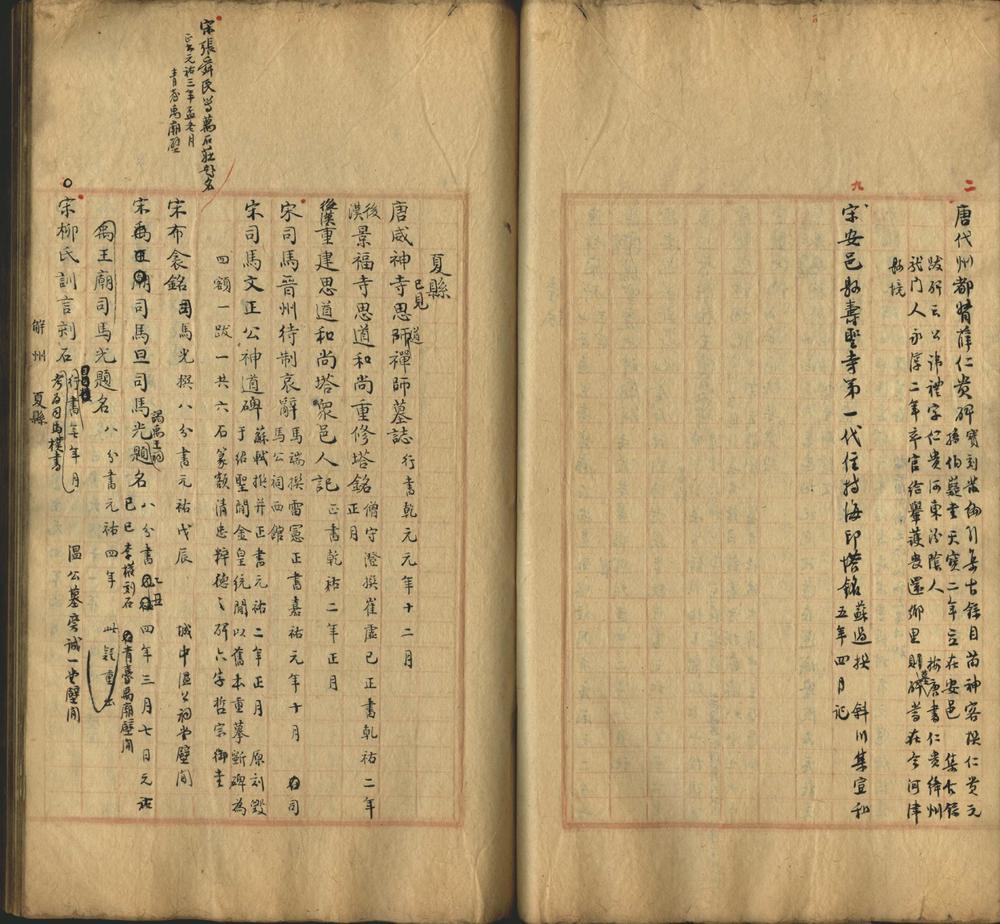 二
唐代州都督薛仁貴碑
寶刻叢編引集古錄目苗神客撰仁貴元
孫伯嶷書天寶二年立在安邑 集古錄
跋碑云公諱禮字仁貴河東汾陰人 按唐書仁貴絳州
龍門人永淳二年卒官給轝護喪還鄉里則墓碑當在今河津
縣境
九
宋安邑縣壽聖寺第一代住持海印塔銘
蘇過撰 斜川集宣和
五年四月記
夏縣
已見
唐咸神寺思道師禪師墓誌 行書乾元元年十二月
後漢景福寺思道和尚重修塔銘 僧守澄撰崔虛己正書乾祐二年
正月
後漢重建思道和尚塔眾邑人記 正書乾祐二年正月
宋司馬晉州待制哀辭 馬端撰雷憲正書嘉祐元年十月 在司
馬公祠西館
宋司馬文正公神道碑 蘇軾撰并正書元祐二年正月 原刻毀
于紹聖間金皇統間以舊本重摹斷碑為
四額一跋一共六石篆額清忠粹德之碑六字哲宗御書
宋布衾銘 司馬光撰八分書元祐戊辰 城中溫公祠堂壁間
宋禹王廟司馬旦司馬光題名 八分書 四年三月七日元祐
謁禹王祠
乙丑
己巳李 刻石 在青臺禹廟壁間
禹王廟司馬光題名 八分書元祐四年 此疑重出
宋柳氏訓言刻石 行書無年月 溫公墓旁誠一堂壁間
考為司馬樸書
解州 夏縣
宋張齊民 萬石莊 名
正書元祐三年孟冬月
青臺禹廟壁